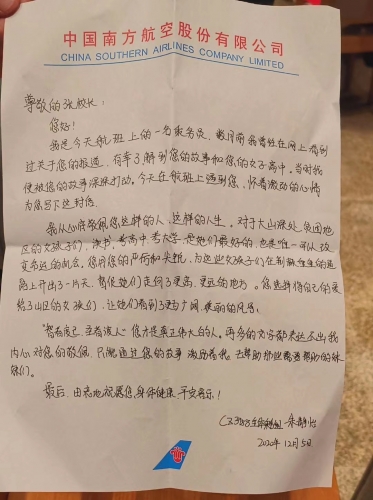 中国南方航空股份有限公司
CHINA SOUTHERN AIRLINES COMPANY LIMITED
尊敬的张校长：
您好！
我是今天航班上的一名乘务员，数月前我曾经在网上看到
过关于您的报道，有幸了解到您的故事和您的女子高中。当时我
便被您的故事深深打动。今天在航班上遇到您，怀着激动的心情
为您写下这封信。
我从心底敬佩您这样的人，这样的人生。对于大山深处、贫困地
区的女孩们，读书、考高中、考大学，是她们最好的，也是唯一可以改
变命运的机会。您用您的严苛和头纸，为这些女孩子们在荆棘生生的道
路上开出了一片天，帮助她们走向了更高、更远的地方。您选择将自己的爱
给了山区的女孩们，让她们看到了更为广阔、美丽的风景。
“智者度己，圣者渡人”您才是真正伟大的人。再多的文字都表达不出我
内心对您的敬佩，只能通过您的故事激励着我，去帮助那些需要帮助的
们。
最后，由衷地祝愿您身体健康，平安喜乐！
CZ3988
朱静怡
2020年12月5日